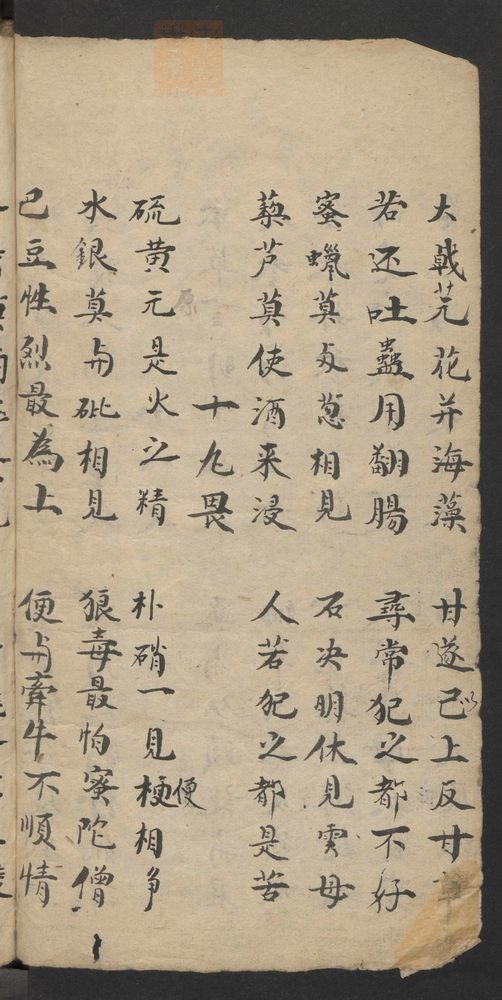 大戟芫花并海藻 甘遂已上反甘草
若还吐蠱用翻腸 尋常犯之都不好
蜜蠟莫与葱相見 石决明休見雲母
藜芦莫使酒来浸 人若犯之都是苦
十九畏
硫黄元是火之精 朴硝一見便相争
水銀莫与砒相見 狼毒最怕蜜陀僧
巴豆性烈最為上 便与牽牛不順情